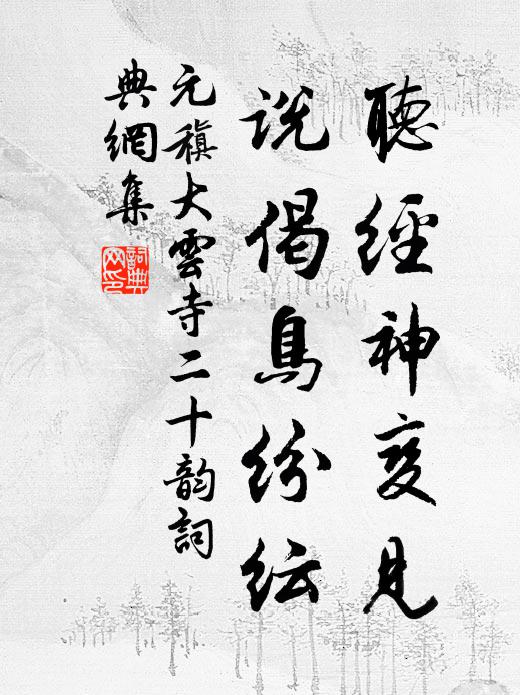 聽經神變見
說偈鳥紛紜
元稹大雲寺二十韵詞
典網集
詞典
网印